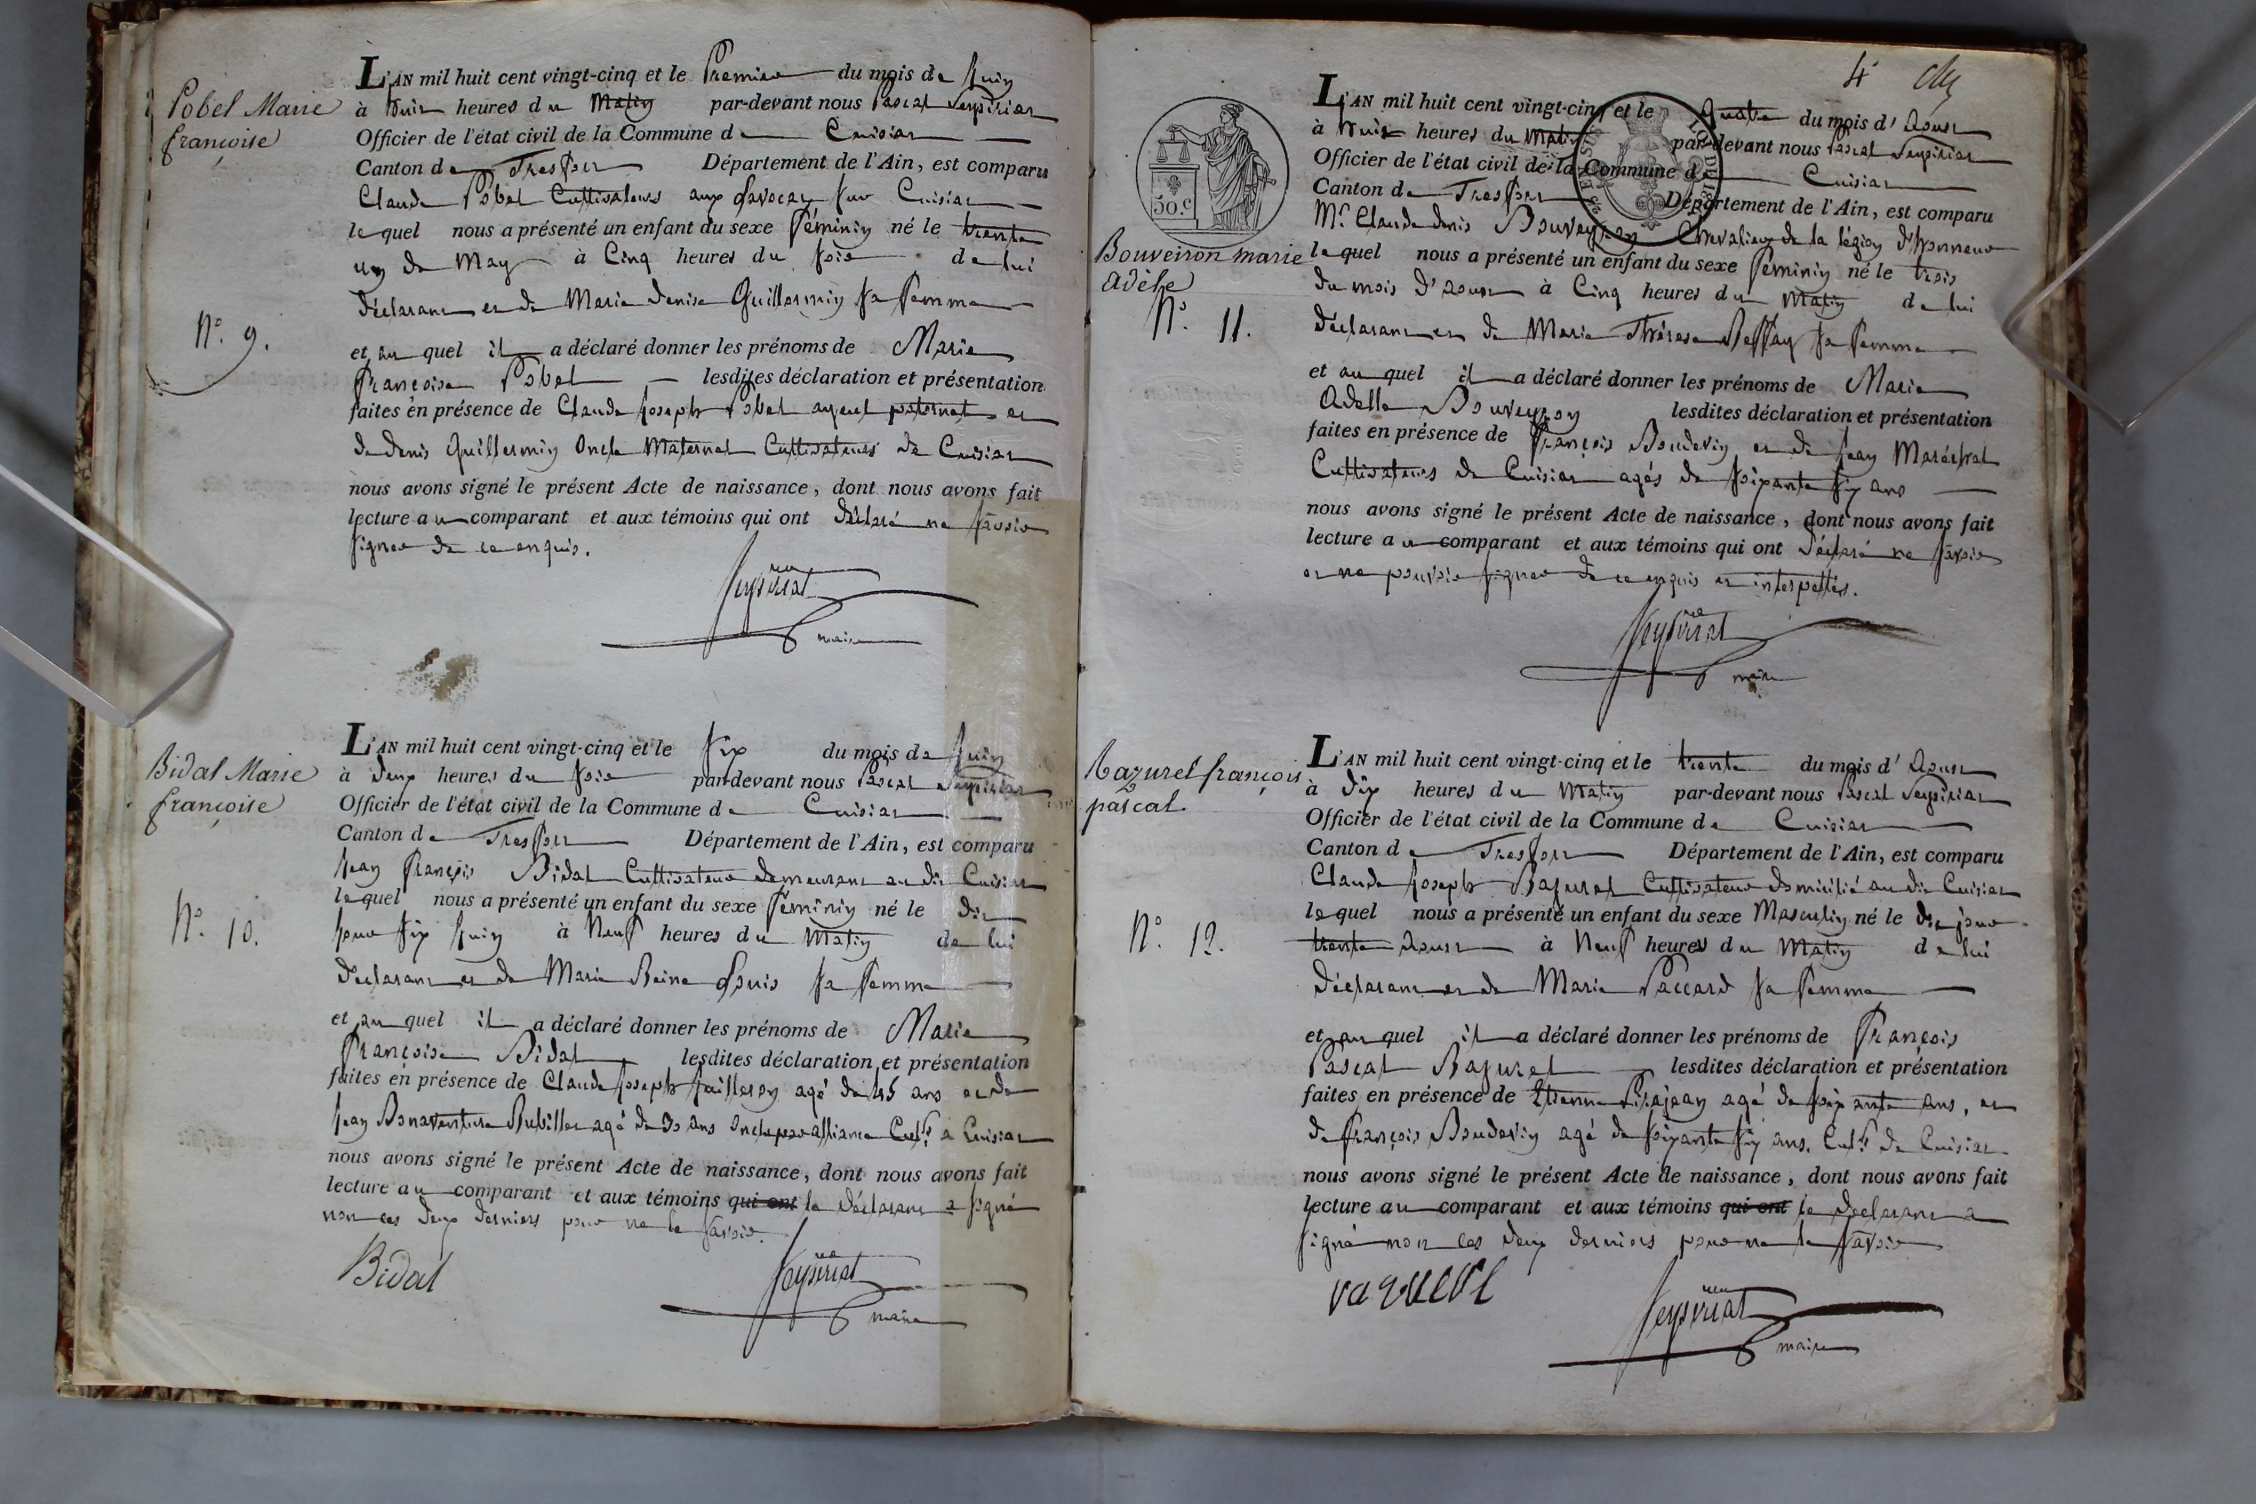 Pobel Marie
françoise
N.° 9.
L'AN mil huit cent vingt-cinq et le Premier du mois de juin
à huit heures du Matin par-devant nous Pascal Seysiriat
Officier de l'état civil de la Commune de Cuisiat
Canton de Treffort Département de l'Ain, est comparu
Claude Pobel Cultivateurs aux Lavocat sur Cuisiat
lequel nous a présenté un enfant du sexe féminin né le trente
un de May à Cinq heures du soir de lui
déclarant et de Marie denise Guillermin sa femme
et au quel il a déclaré donner les prénoms de Marie
françoise Pobel lesdites déclaration et présentation
faites en présence de Claude joseph Pobel ayeul paternel et
de denis Guillermin Oncle Maternel Cultivateurs de Cuisiat
nous avons signé le présent Acte de naissance, dont nous avons fait
lecture au comparant et aux témoins qui ont déclaré ne savoir
signer de ce enquis.
Seysiriat
maire
Bidal Marie
françoise
N.° 10.
L'AN mil huit cent vingt-cinq et le six du mois de juin
à deux heures du soir par-devant nous Pascal Seysiriat
Officier de l'état civil de la Commune de Cuisiat
Canton de Treffort Département de l'Ain, est comparu
jean françois Bidal Cultivateur demeurant au dit Cuisiat
lequel nous a présenté un enfant du sexe féminin né le dit
jour six juin à Neuf heures du Matin de lui
déclarant et de Marie Reine Louis sa femme
et au quel il a déclaré donner les prénoms de Marie
françoise Bidal lesdites déclaration et présentation
faites en présence de Claude joseph agé de 45 ans et de
jean Bonaventure agé de 30 ans Oncle par alliance Cult.rs à Cuisiat
nous avons signé le présent Acte de naissance, dont nous avons fait
lecture au comparant et aux témoins qui ont le déclarant a signé
non les deux derniers pour ne le savoir.
Bidal
Seysiriat
maire
4.e
50.c
Bouveiron marie
Adèle
N.° 11.
L'AN mil huit cent vingt-cinq et le quatre du mois d'Aoust
à huit heures du Matin par-devant nous Pascal Seysiriat
Officier de l'état civil de la Commune de Cuisiat
Canton de Treffort Département de l'Ain, est comparu
M.r Claude denis Bouveyron Chevalier de la légion d'honneur
lequel nous a présenté un enfant du sexe féminin né le trois
du mois d'Aoust à Cinq heures du Matin de lui
déclarant et de Marie Thérese Beffay sa femme
et au quel il a déclaré donner les prénoms de Marie
Adelle Bouveyron lesdites déclaration et présentation
faites en présence de françois Boudevin et de jean Maréchal
Cultivateurs de Cuisiat agés de soixante six ans
nous avons signé le présent Acte de naissance, dont nous avons fait
lecture au comparant et aux témoins qui ont déclaré ne savoir
et ne pouvoir signer de ce enquis et interpellés.
Seysiriat
maire
Razurel françois
pascal
N.° 12.
L'AN mil huit cent vingt-cinq et le trente du mois d'Aoust
à dix heures du Matin par-devant nous Pascal Seysiriat
Officier de l'état civil de la Commune de Cuisiat
Canton de Treffort Département de l'Ain, est comparu
Claude joseph Razurel Cultivateur domicilié au dit Cuisiat
lequel nous a présenté un enfant du sexe Masculin né le dit jour
trente Aoust à Neuf heures du Matin de lui
déclarant et de Marie Paccard sa femme
et au quel il a déclaré donner les prénoms de François
Pascal Razurel lesdites déclaration et présentation
faites en présence de Etienne agé de soixante ans, et
de françois Boudevin agé de soixante six ans. Cult.rs de Cuisiat
nous avons signé le présent Acte de naissance, dont nous avons fait
lecture au comparant et aux témoins qui ont le déclarant a
signé non les deux derniers pour ne le savoir
Seysiriat
maire